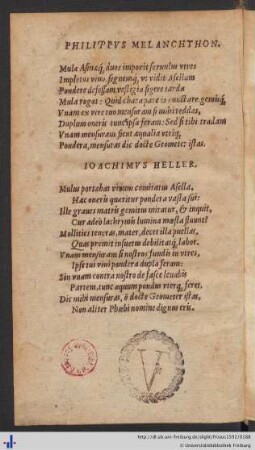 PHILIPPVS MELANCHTHON.
Mula Asinæq́; duos imponit seruulus vtres
Impletos vino, segnemq́; vt vidit Asellam
Pondere defessam vestigia figere tarda
Mula rogat: Quid chara parens cunctare gemisq́;
Vnam ex vtre tuo mensuram si mihi reddas,
Duplum oneris tunc ipsa feram: Sed si tibi tradam
Vnam mensuram fient æqualia vtriq́;
Pondera, mensuras dic docte Geometer istas.
IOACHIMVS HELLER.
Mulus portabat vinum comitatus Asella,
Hac oneris queritur pondera vasta sui:
Ille graues matris gemitus miratur, & inquit,
Cur adeò lachrymis lumina mœsta fluunt?
Mollities teneras, mater, decet illa puellas,
Quas premit insuetus debilitatq́; labor.
Vnam mensuram si nostros fundis in vtres,
Ipse tui vini pondera dupla feram:
Sin vnam contra nostro de fasce leuabis
Partem, tunc æquum pondus vterq́; feret.
Dic mihi mensuras, ô docte Geometer istas,
Non aliter Phœbi nomine dignus eris.
V
http://dl.ub.uni-freiburg.de/diglit/frisius1592/0188
© Universitätsbibliothek Freiburg